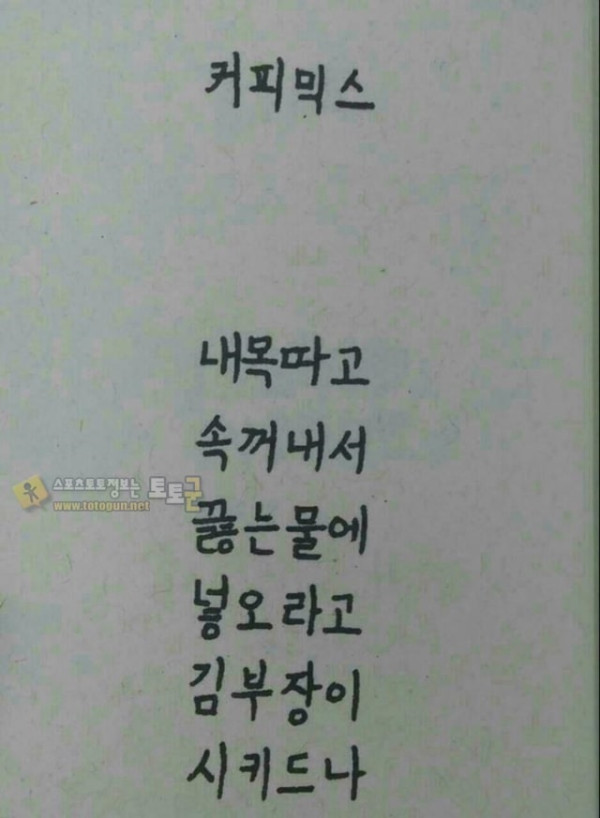 커피믹스
내목따고
속꺼내서
스포츠토토정보는 토토군
www.totogun.net
끓는물에
넣오라고
김부장이
시키드나